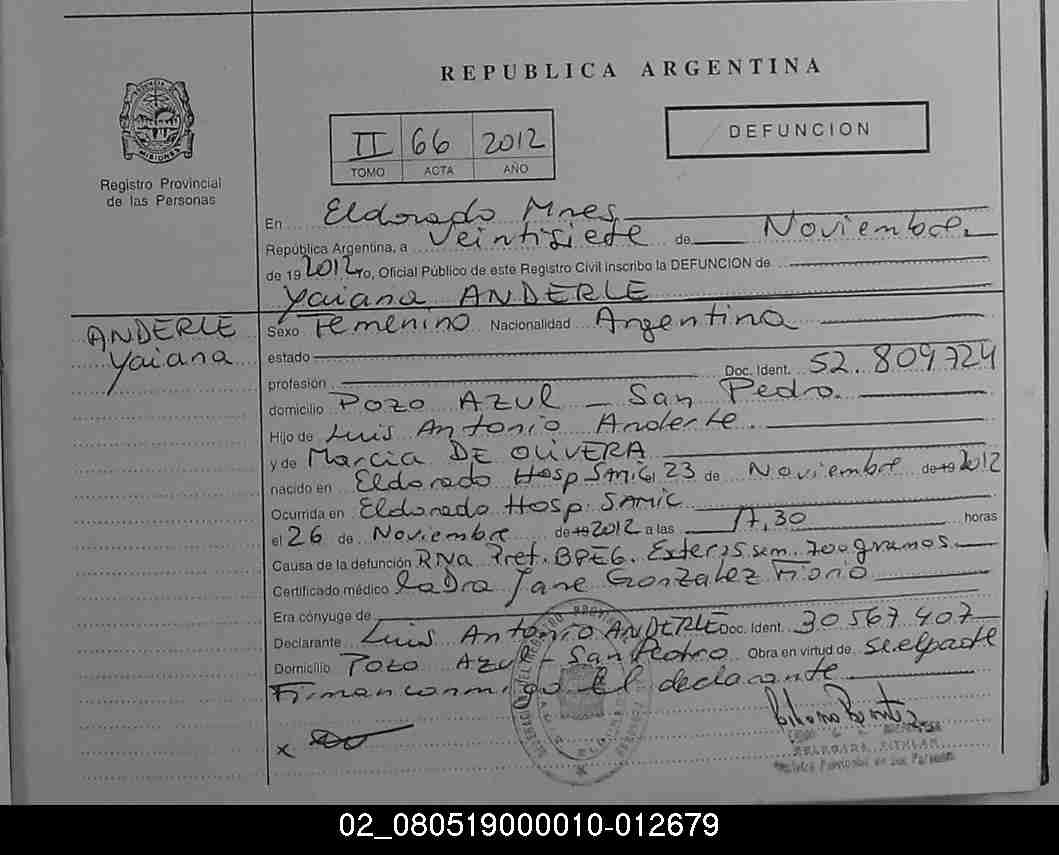 REPUBLICA ARGENTINA
II 66 2012
TOMO ACTA AÑO
DEFUNCION
PROVINCIA DE MISIONES
Registro Provincial
de las Personas
En Eldorado Mnes.
República Argentina, a Veintisiete de Noviembre
de 19 2012 Yo, Oficial Público de este Registro Civil inscribo la DEFUNCION de
Yaiana ANDERLE
ANDERLE
Yaiana
Sexo Femenino Nacionalidad Argentina
estado
profesión Doc. Ident. 52.809.724
domicilio POZO AZUL - San Pedro.
Hijo de Luis Antonio Anderle.
y de Marcia DE OLIVERA
nacido en Eldorado Hosp SAMIC 23 de Noviembre de 19 2012
Ocurrida en Eldorado Hosp. SAMIC
el 26 de Noviembre de 19 2012 a las 17,30 horas
Causa de la defunción RNa Pret. BPEG. 25 sem. 700 gramos.
Certificado médico la Dra Jane Gonzalez
Era cónyuge de
Declarante Luis Antonio ANDERLE Doc. Ident. 30567407
Domicilio POZO AZUL - San Pedro Obra en virtud de ser el padre
Firman conmigo El declarante
x
DELEGADA TITULAR
Registro Provincial de las Personas
02_080519000010-012679